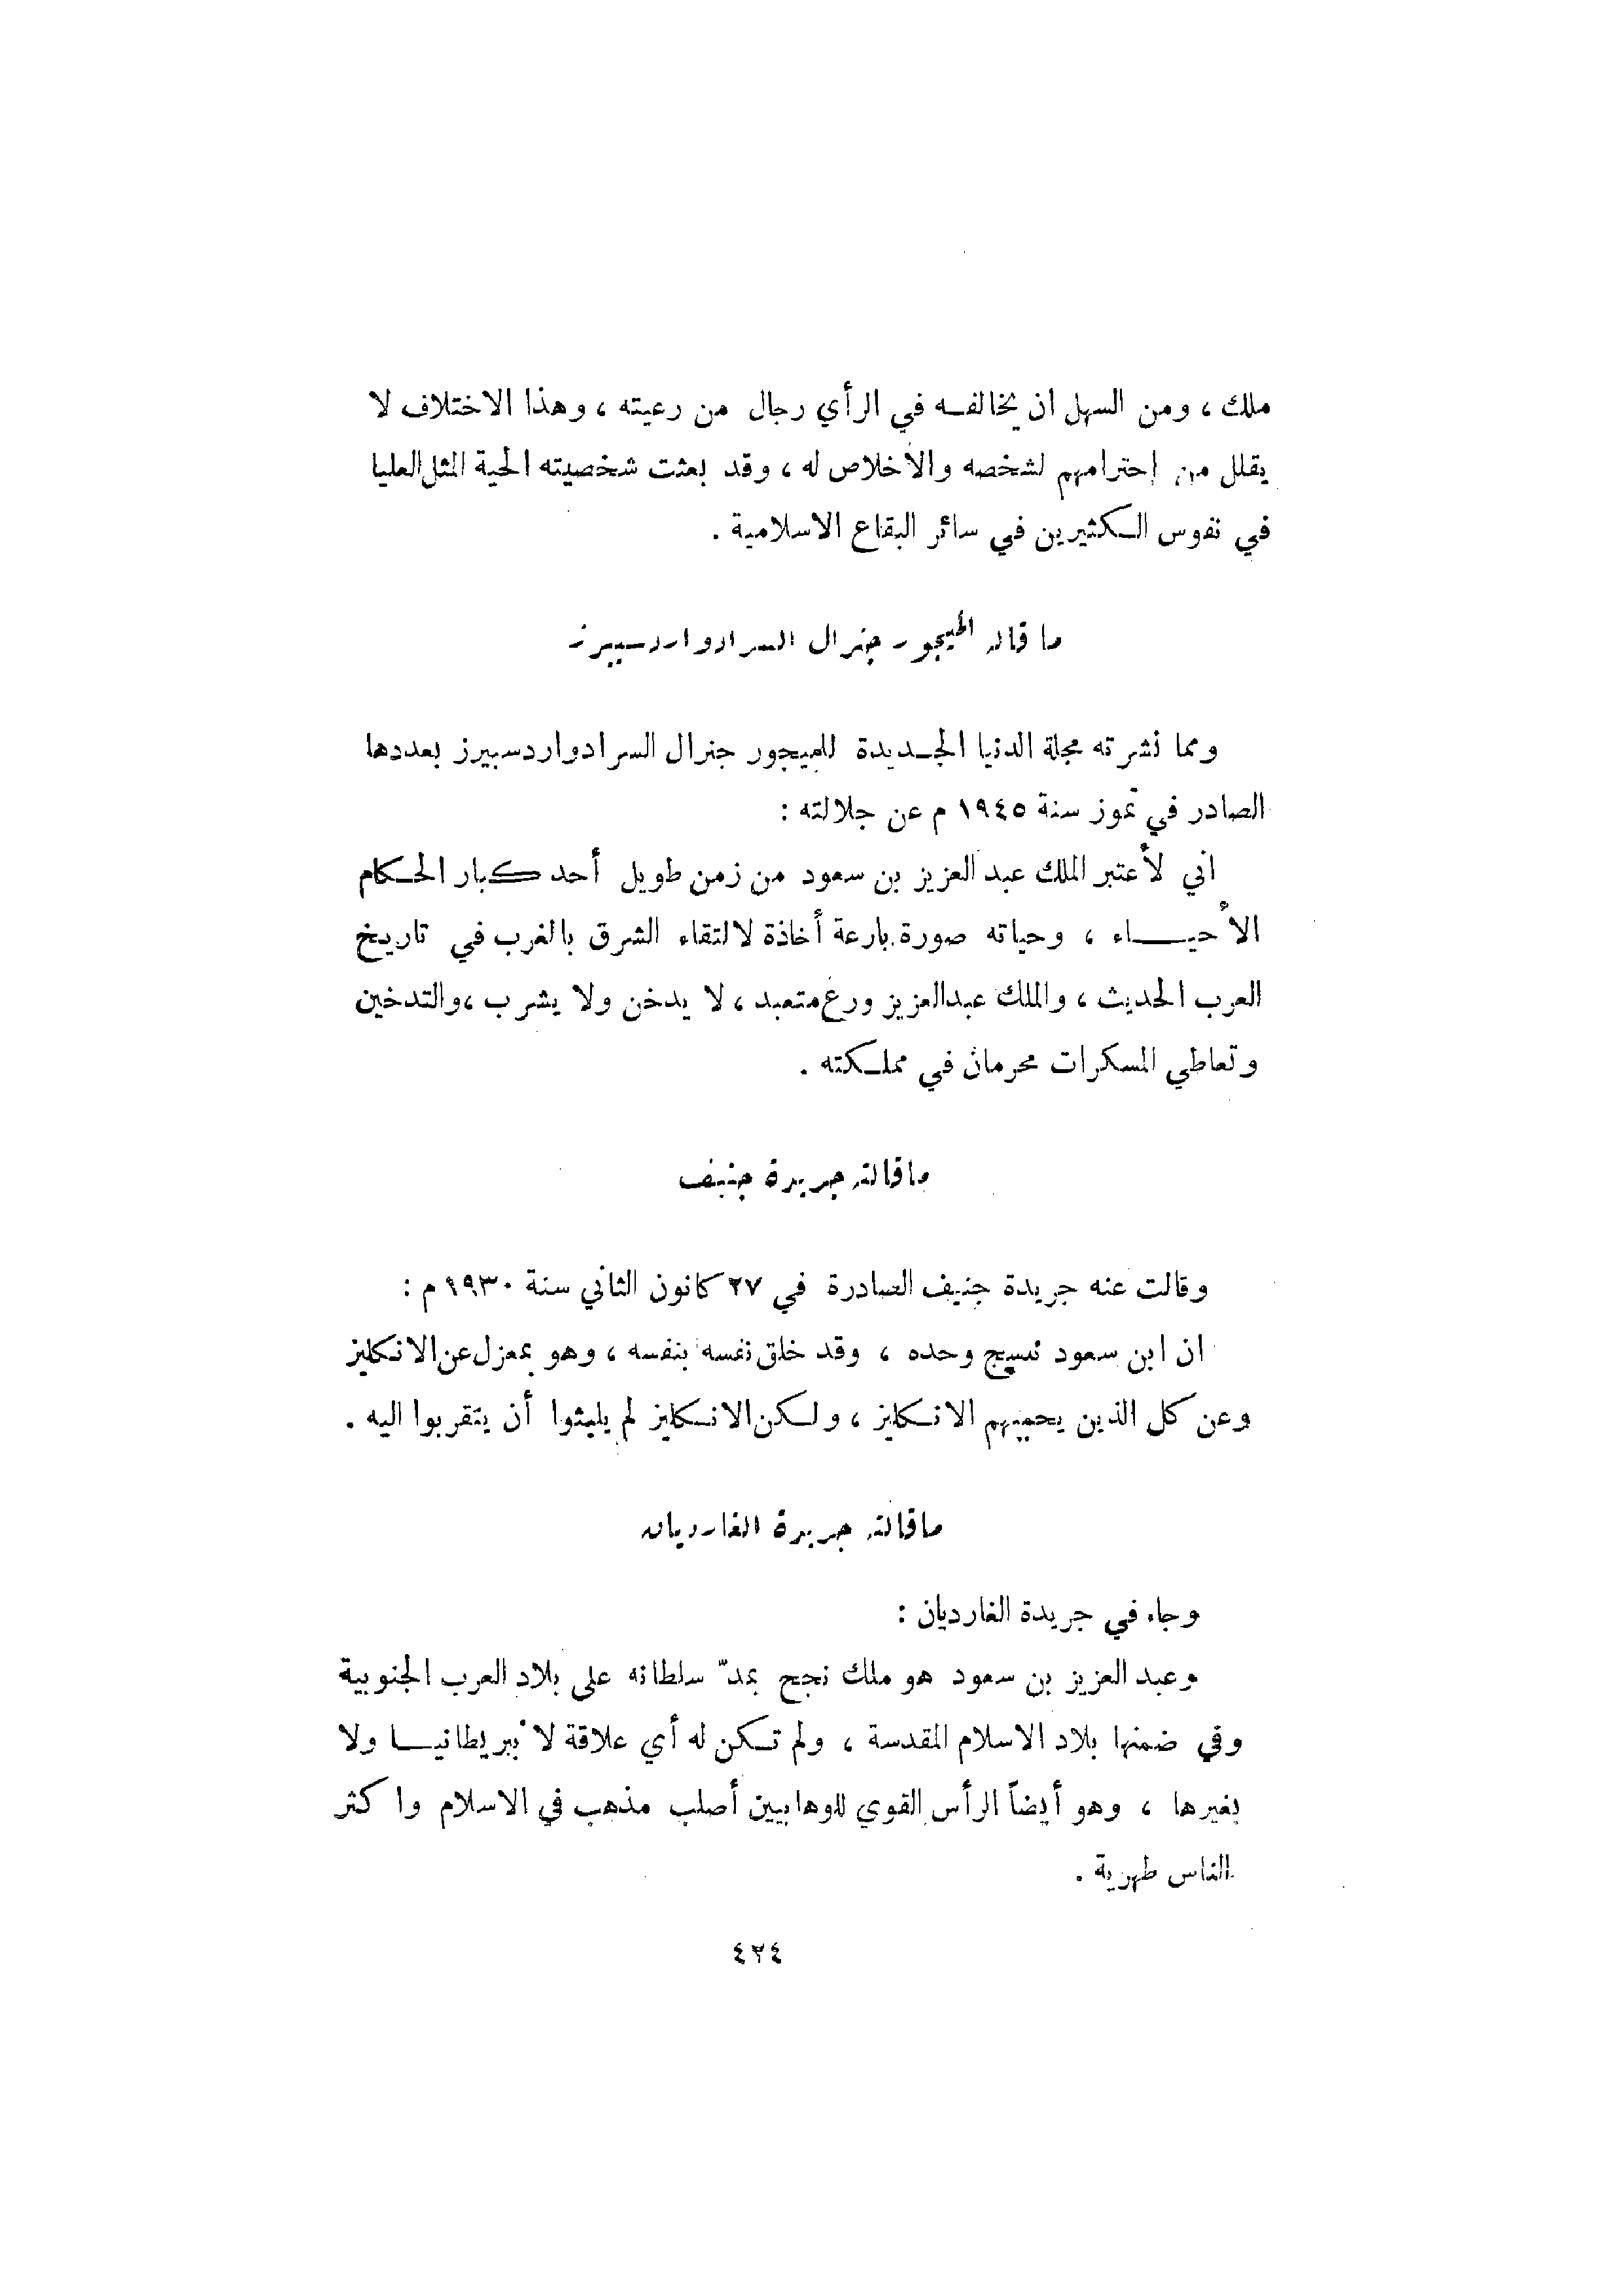 ملك ، ومن السهل ان يخالفه في الرأي رجال من رعيته ، وهذا الاختلاف لا
يقلل من إحترامهم لشخصه والاخلاص له ، وقد بعثت شخصيته الحية المثل العليا
في نفوس الكثيرين في سائر البقاع الاسلامية .
ما قاله الميجور جنرال السر ادوارد سبيرز
ومما نشرته مجلة الدنيا الجديدة للميجور جنرال السر ادوارد سبيرز بعددها
الصادر في تموز سنة ١٩٤٥ م عن جلالته :
اني لأعتبر الملك عبد العزيز بن سعود من زمن طويل أحد كبار الحكام
الأحياء ، وحياته صورة بارعة أخاذة لالتقاء الشرق بالغرب في تاريخ
العرب الحديث ، والملك عبدالعزيز ورع متعبد ، لا يدخن ولا يشرب ، والتدخين
وتعاطي المسكرات محرمان في مملكته .
ما قالته جريدة جنيف
وقالت عنه جريدة جنيف الصادرة في ٢٧ كانون الثاني سنة ١٩٣٠ م :
ان ابن سعود نسيج وحده ، وقد خلق نفسه بنفسه ، وهو بمعزل عن الانكليز
وعن كل الذين يحميهم الانكليز ، ولكن الانكليز لم يلبثوا أن يتقربوا اليه .
ما قالته جريدة الغارديان
وجاء في جريدة الغارديان :
وعبد العزيز بن سعود هو ملك نجح بمدّ سلطانه على بلاد العرب الجنوبية
وفي ضمنها بلاد الاسلام المقدسة ، ولم تكن له أي علاقة لا ببريطانيا ولا
بغيرها ، وهو أيضاً الرأس القوي للوهابيين أصلب مذهب في الاسلام واكثر
الناس طهرية .
٤٢٤